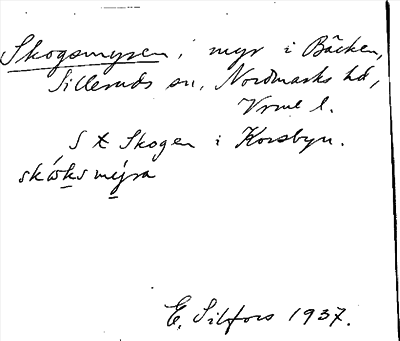 Skogsmyren, myr i Bäcken,
Silleruds sn, Nordmarks hd,
Vrml l.
S t Skogen i Korsbyn.
E. Silfors 1937.